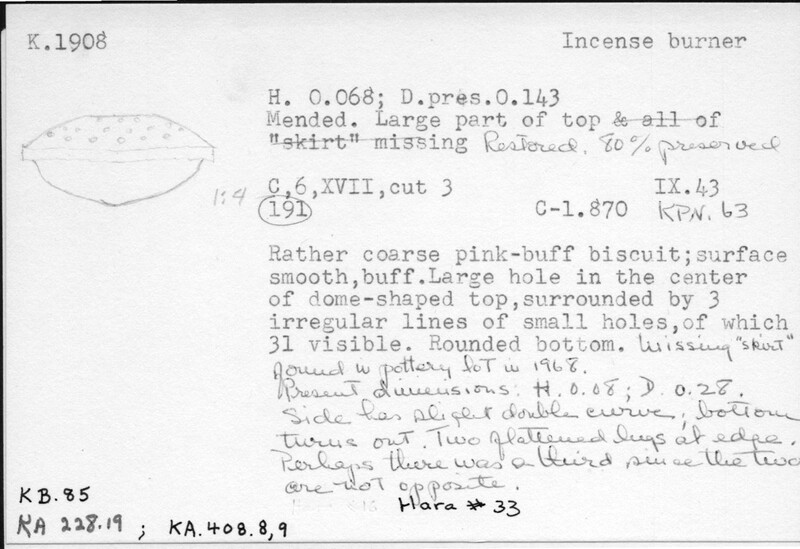 K.1908 Incense burner
H. 0.068; D.pres.0.143
Mended. Large part of top & all of
"skirt" missing Restored. 80% preserved
1:4
C,6,XVII,cut 3 IX.43
191 C-1.870 KPN. 63
Rather coarse pink-buff biscuit;surface
smooth,buff.Large hole in the center
of dome-shaped top,surrounded by 3
irregular lines of small holes,of which
31 visible. Rounded bottom. Missing "skirt"
found in pottery lot in 1968.
Present dimensions: H. 0.08; D. 0.28.
Side has slight double curve; bottom
turns out. Two flattened lugs at edge.
Perhaps there was a third since the two
are not opposite.
Hara # 33
KB.85
KA 228.19 ; KA.408.8,9